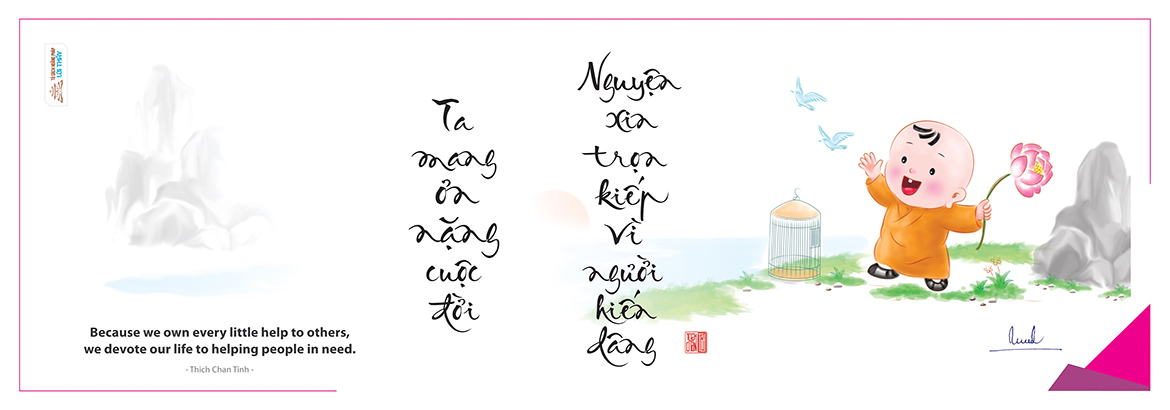 TỦ SÁCH HOẰNG PHÁP
Ta
mang
ơn
nặng
cuộc
đời
Nguyện
xin
trọn
kiếp
vì
người
hiến
dâng
Because we own every little help to others,
we devote our life to helping people in need.
- Thich Chan Tinh -